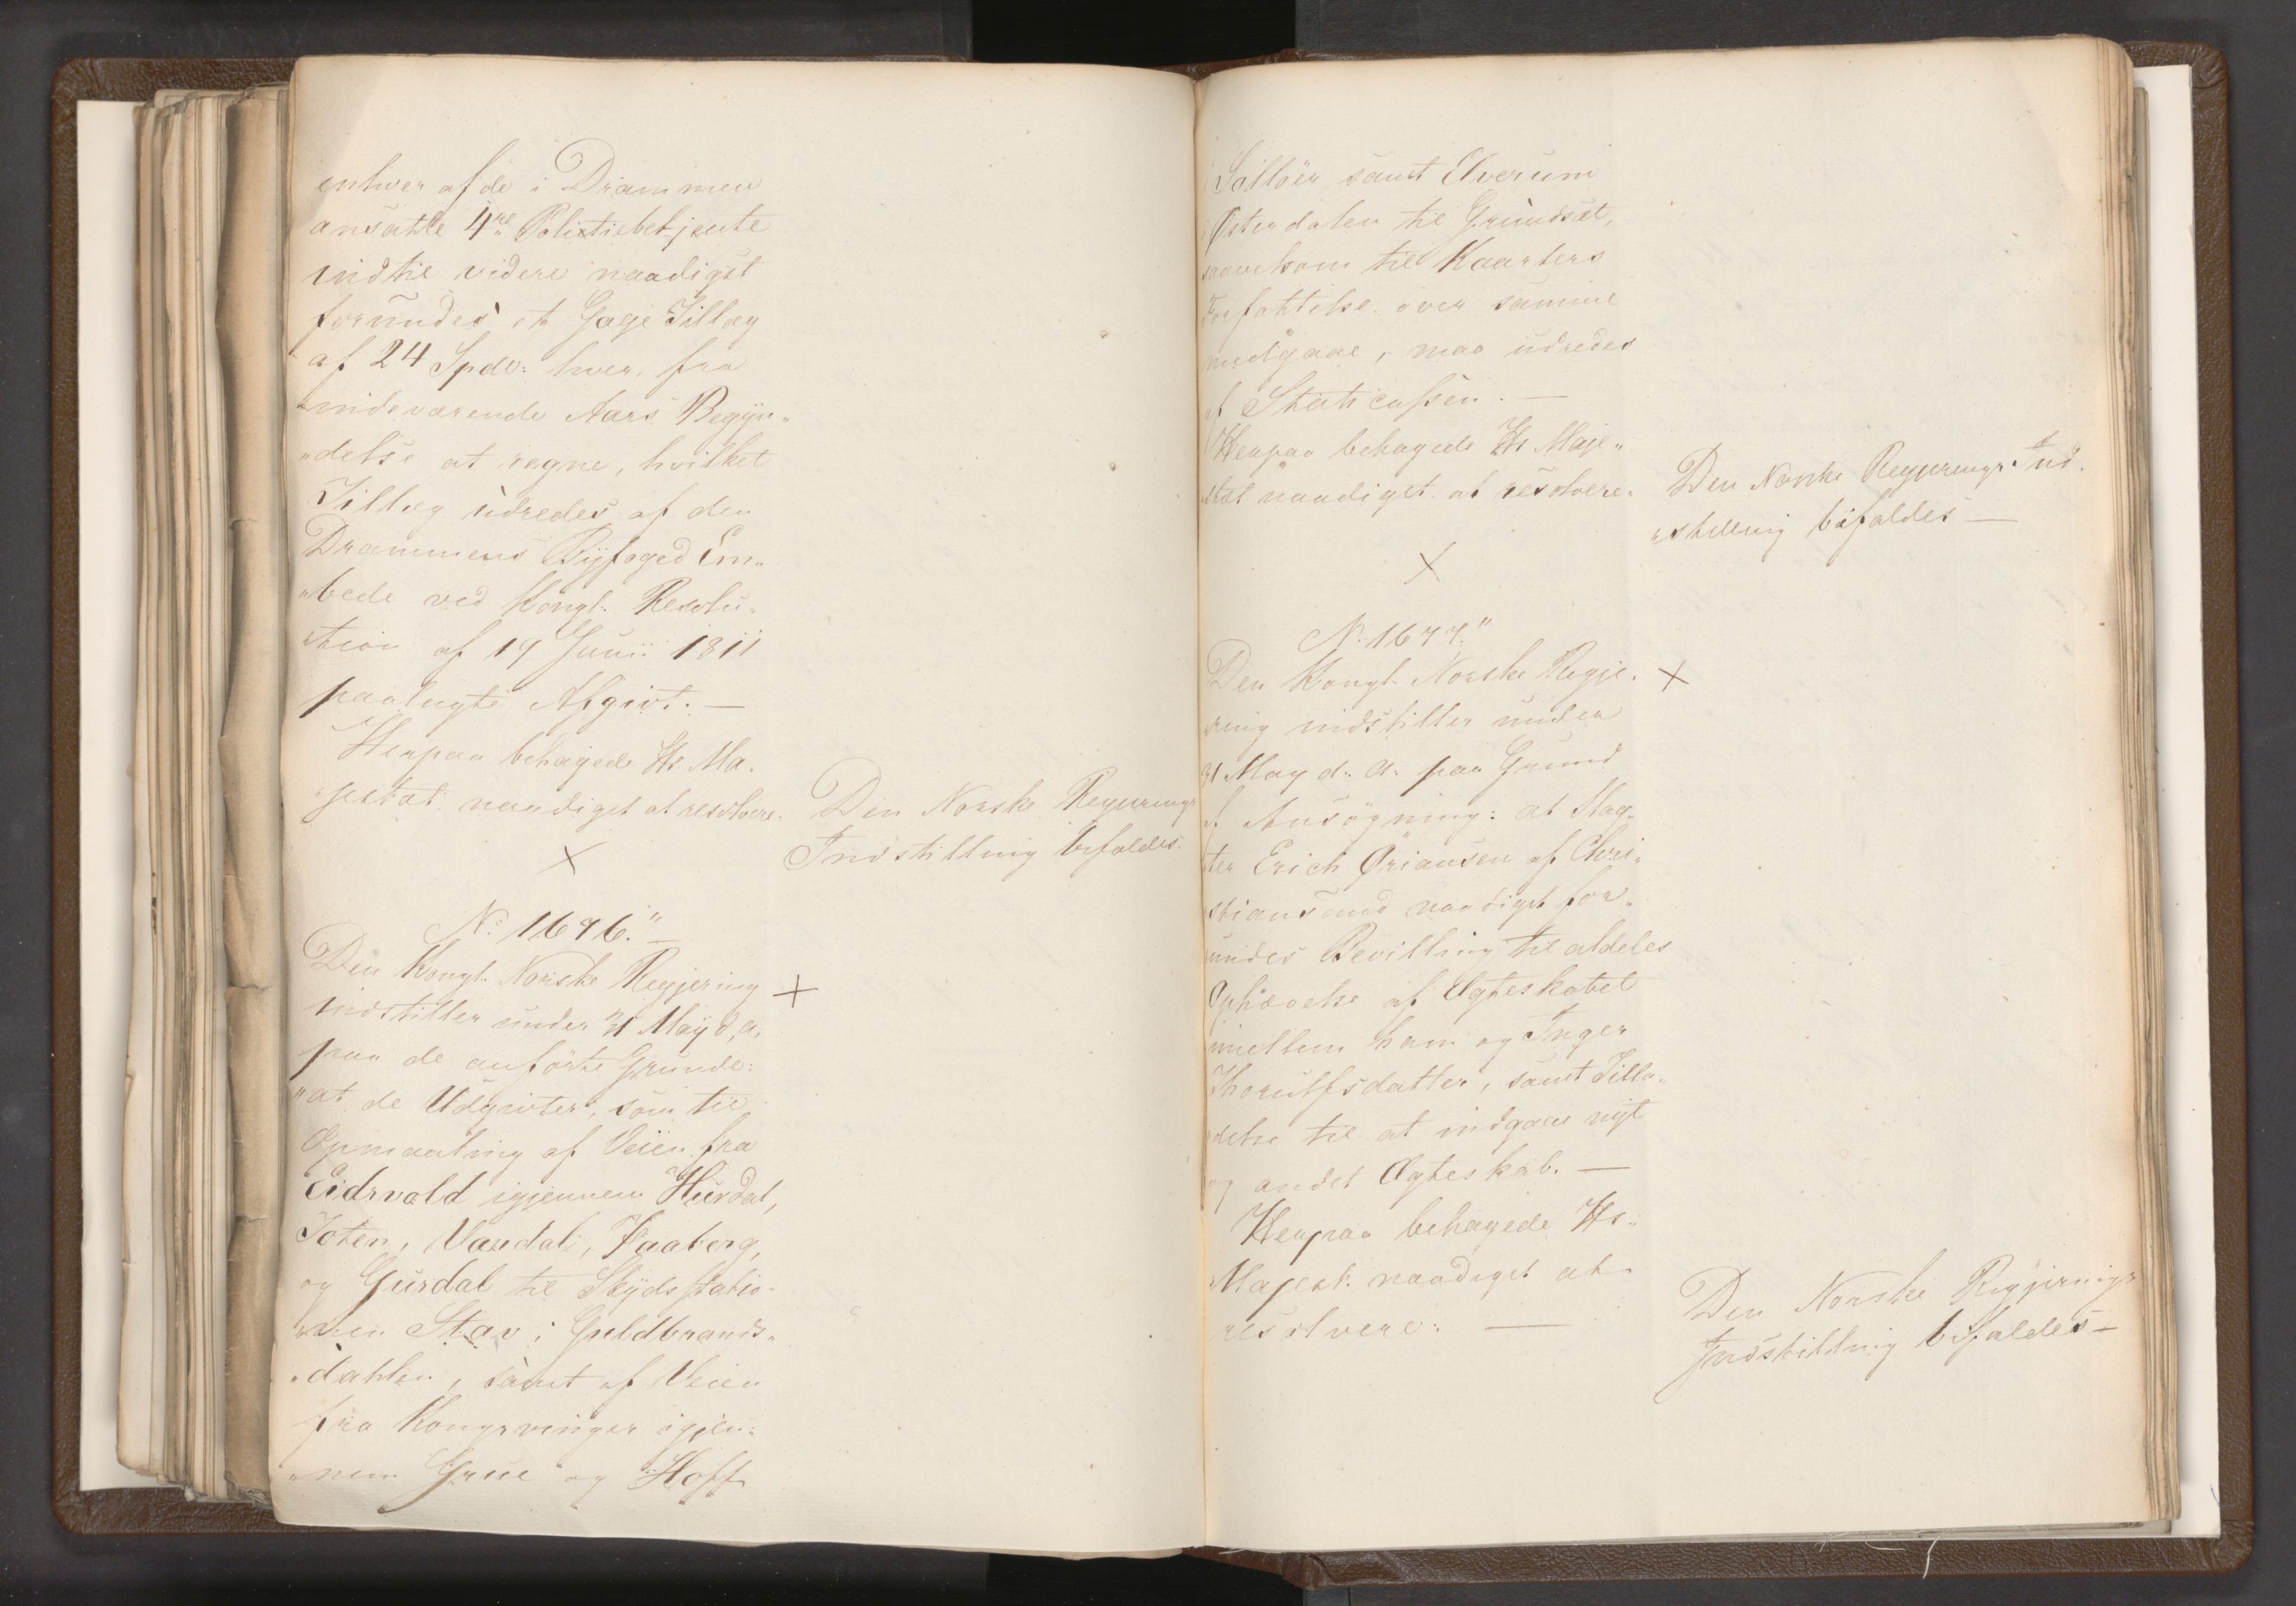 enhver af de i Drammen
ansatte 4re Politiebetjente
indtil videre naadigst
forundes et Gage Tillæg
af 24 Spdr: hver, fra
indeværende Aars Begyn„
„delse at regne, hvilket
Tillæg udredes af den
Drammens Byfoged Em„
„bede ved Kongl. Resolu„
„tion af 19 Junii 1811
paalagte Afgivt. —
Herpaa behagede Hs. Ma„
„jestæt naadigst at resolvere:
Den Norske Regjerings
Indstilling bifaldes.
No 1696."
Den Kongl. Norske Regjering
indstiller under 31 May d. a.
paa de anførte Grunde:
„at de Udgivter, som til
Opmaaling af Veien fra
Eidsvold igjennem Hurdal,
Toten, Vardal, Faaberg,
og Gusdal til Skydsstatio„
„nen Stav i Guldbrands„
„dahlen, samt af Veien
fra Kongsvinger igjen„
„nem Grue og Hoff
i Solløer samt Elverum
i Østerdalen til Grundset,
saavelsom til Kaarters
Forfattelse over samme
medgaae, maa udredes
af Statscassen. —
Herpaa behagede Hs Maje„
„stæt naadigst at resolvere:
Den Norske Regjerings Ind„
„stilling bifaldes —
No 1697."
Den Kongl. Norske Regje„
„ring indstiller under
31 May d. a. paa Grund
af Ansøgning: at Slag„
„ter Erich Øriansen af Chri„
„stiansund naadigst for„
„undes Bevilling til aldeles
Ophævelse af Ægteskabet
imellem ham og Inger
Thorulfsdatter, samt Tilla„
„delse til at indgaae nyt
og andet Ægteskab. —
Herpaa behagede Hs.
Majest. naadigst at
resolvere: —
Den Norske Regjerings
Indstilling bifaldes —